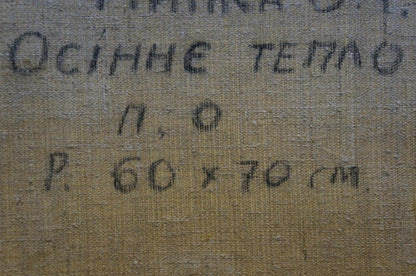 Осіннє тепло
п. о
Р. 60 х 70 см.